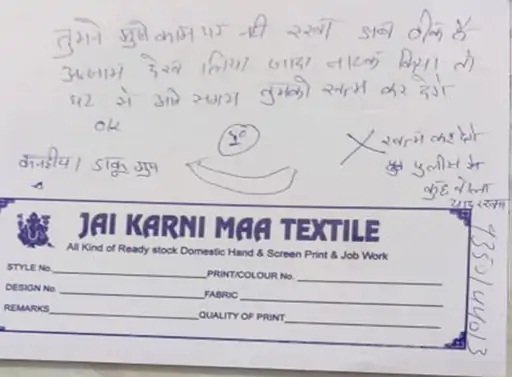 तुमने मुझे काम पर नही रखा अब ठीक है
अन्जाम देख लिया जादा नाटक किया तो
घर से आते समय तुमको खत्म कर देगे
OK
खत्म कर देगे
पुलीस मे
कुछ बोला
याद रखना
डाकू ग्रुप
JAI KARNI MAA TEXTILE
All Kind of Ready stock Domestic Hand & Screen Print & Job Work
STYLE No.
PRINT/COLOUR No.
DESIGN No.
FABRIC
REMARKS
QUALITY OF PRINT